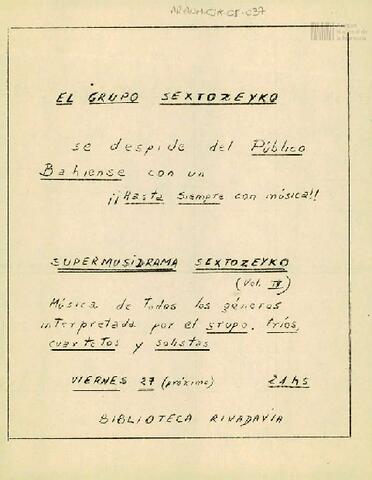 EL GRUPO SEXTOZEYKO
se despide del Público
Bahiense con un
¡¡Hasta siempre con música!!
SUPERMUSIDRAMA SEXTOZEYKO
(Vol. IV)
Música de todos los géneros
interpretada por el grupo, tríos,
cuartetos y solistas
VIERNES 27 (próximo) 21 hs
BIBLIOTECA RIVADAVIA